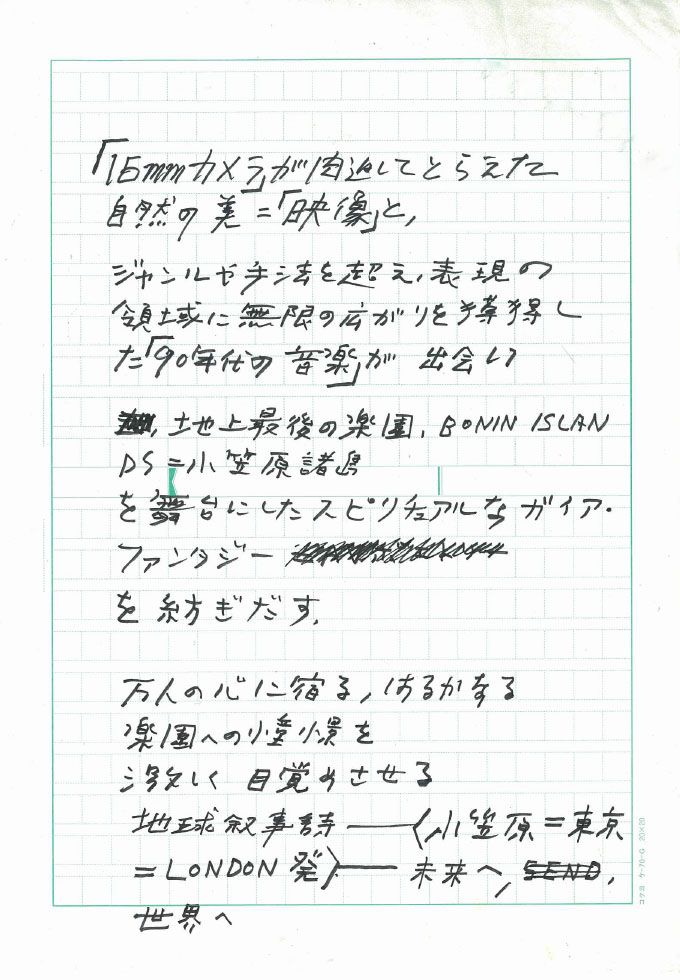 「16mmカメラ」が肉迫してとらえた
自然の美=「映像」と,
ジャンルや手法を超え,表現の
領域に無限の広がりを獲得し
た「90年代の音楽」が 出会い
,地上最後の楽園,BONIN ISLAN
DS=小笠原諸島
を舞台にしたスピリチュアルなガイア・
ファンタジー
を紡ぎだす.
万人の心に宿る,はるかなる
楽園への憧憬を
激しく 目覚めさせる
地球叙事詩――〈小笠原=東京
=LONDON 発〉―― 未来へ, SEND,
世界へ
コクヨ ケ-70-G 20×20